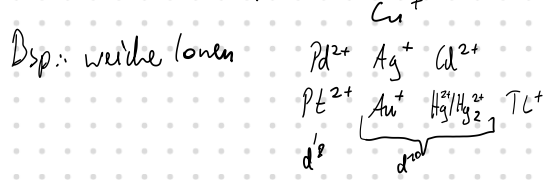 Cu⁺
Bsp.: weiche Ionen Pd²⁺ Ag⁺ Cd²⁺
Pt²⁺ Au⁺ Hg²⁺/Hg₂²⁺ Tl⁺
d⁸ d¹⁰